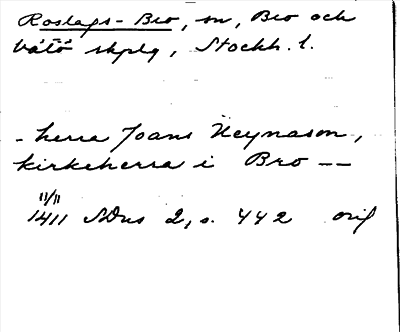 Roslags-Bro, sn, Bro och
Vätö skplg, Stockh. l.
- herra Joans Neynason,
kirkeherra i Bro --
11/11
1411 SDns 2, s. 442 orig